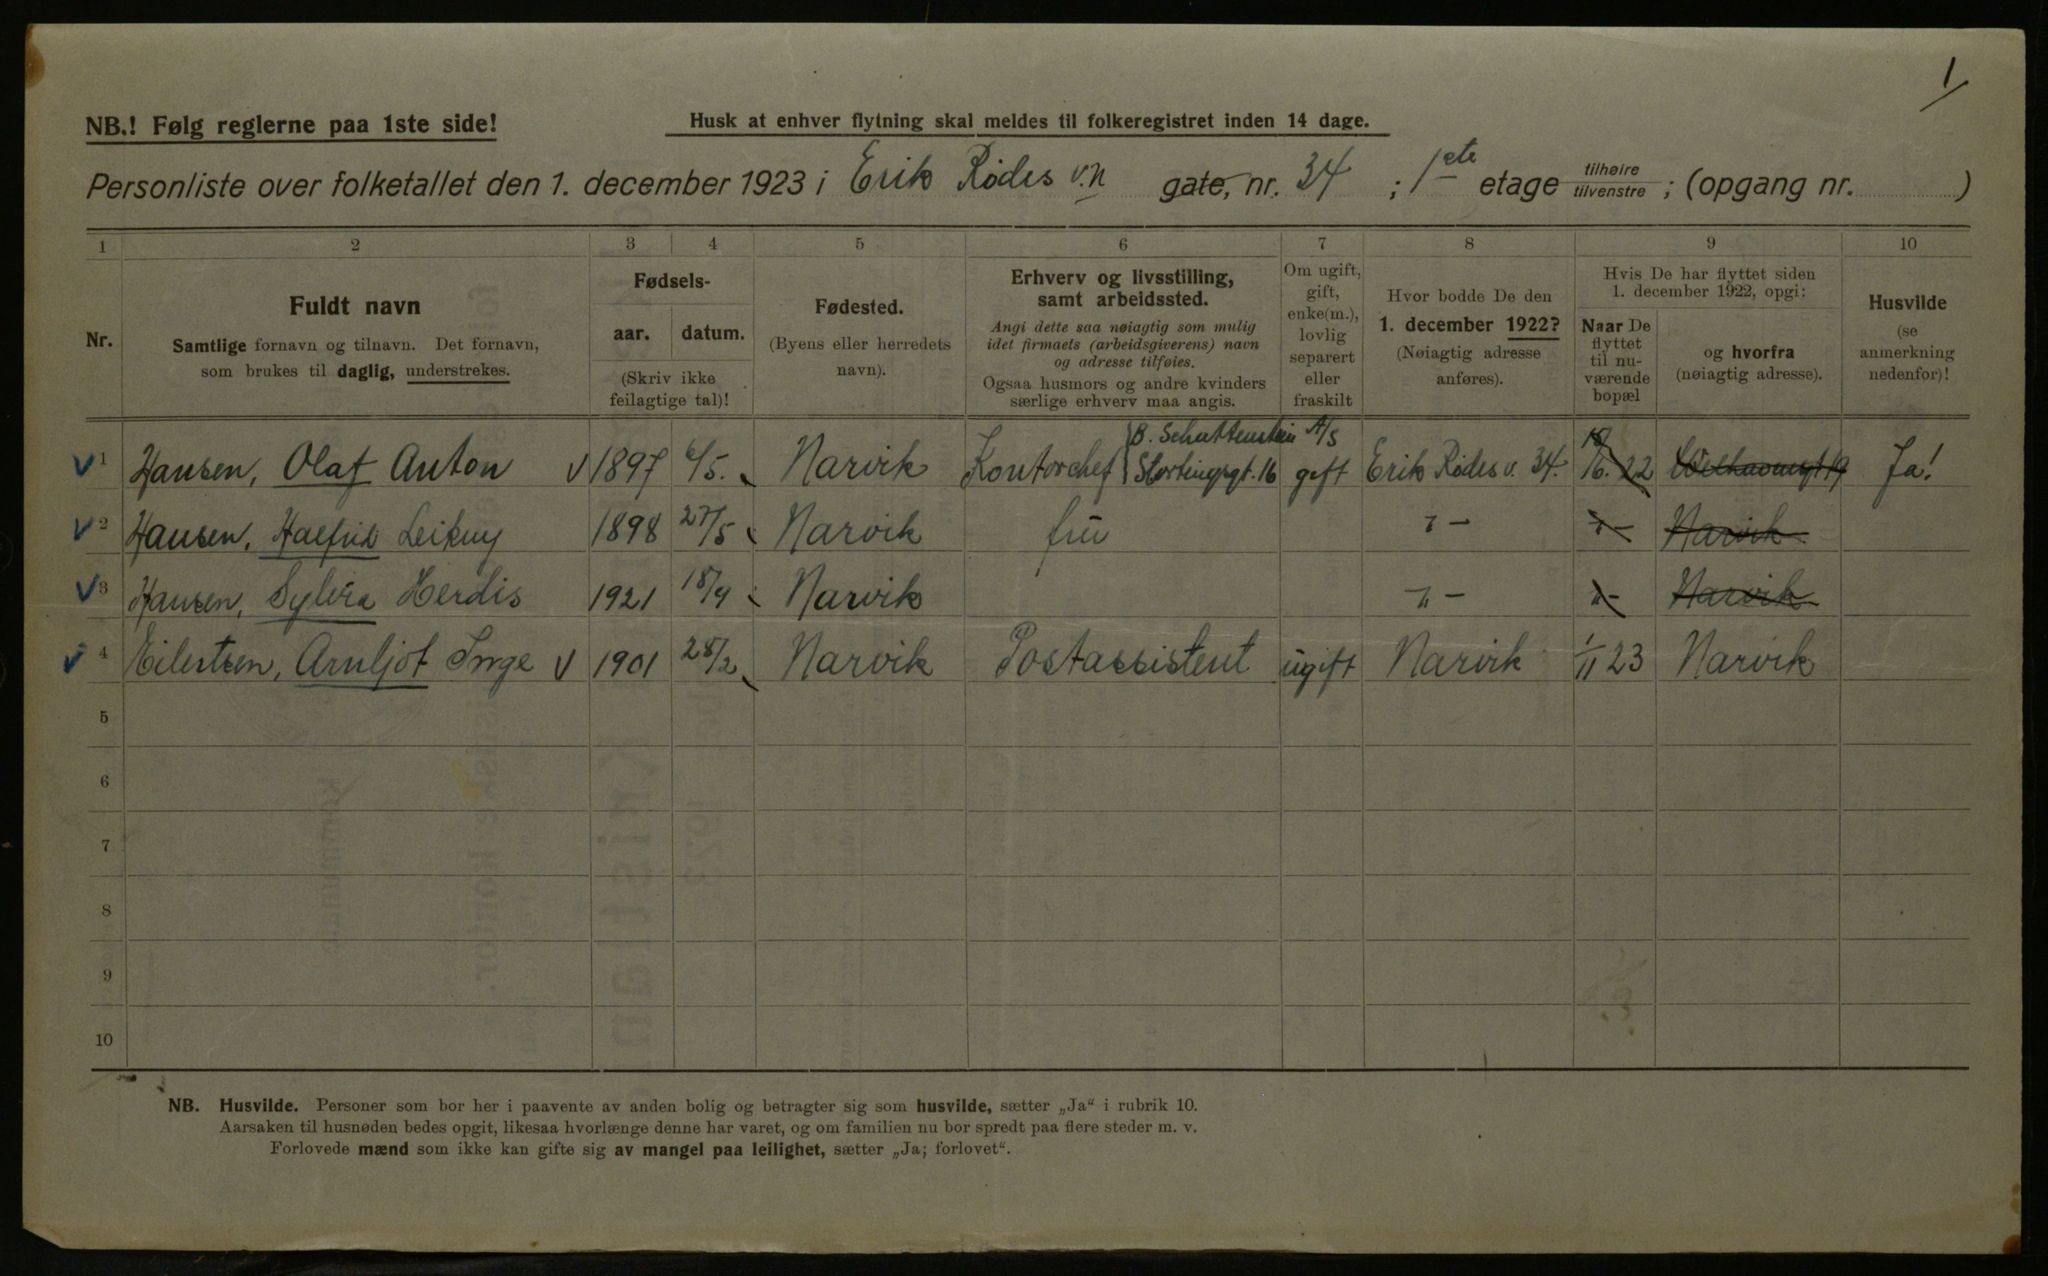 1/
NB.! Følg reglerne paa 1ste side!
Husk at enhver flytning skal meldes til folkeregistret inden 14 dage.
Personliste over folketallet den 1. december 1923 i Erik Rødes v.n gate, nr. 34 ; 1ste etage tilhøire tilvenstre ; (opgang nr. )
1 2 3 4 5 6 7 8 9 10
Nr.
Fuldt navn
Samtlige fornavn og tilnavn. Det fornavn,
som brukes til daglig, understrekes.
Fødsels-
aar. datum.
(Skriv ikke
feilagtige tal)!
Fødested.
(Byens eller herredets
navn).
Erhverv og livsstilling,
samt arbeidssted.
Angi dette saa nøiagtig som mulig
idet firmaets (arbeidsgiverens) navn
og adresse tilføies.
Ogsaa husmors og andre kvinders
særlige erhverv maa angis.
Om ugift,
gift,
enke(m.),
lovlig
separert
eller
fraskilt
Hvor bodde De den
1. december 1922?
(Nøiagtig adresse
anføres).
Hvis De har flyttet siden
1. december 1922, opgi:
Naar De
flyttet
til nu-
værende
bopæl
og hvorfra
(nøiagtig adresse).
Husvilde
(se
anmerkning
nedenfor)!
V 1 Hansen, Olaf Anton V 1897 6/5. Narvik Kontorchef { B. Schuttenstein A/S Stortingsgt. 16 gift Erik Rødes v. 34. 22 Ja!
V 2 Hansen, Leikny 1898 27/5 Narvik frü " - " - Narvik
V 3 Hansen, Sylvia Herdis 1921 18/9 Narvik " - " - Narvik
V 4 Eilertsen, Arnljot Inge V 1901 28/2 Narvik Postassistent ugift Narvik 1/11 23 Narvik
5
6
7
8
9
10
NB. Husvilde. Personer som bor her i paavente av anden bolig og betragter sig som husvilde, sætter „Ja“ i rubrik 10.
Aarsaken til husnøden bedes opgit, likesaa hvorlænge denne har varet, og om familien nu bor spredt paa flere steder m. v.
Forlovede mænd som ikke kan gifte sig av mangel paa leilighet, sætter „Ja; forlovet“.